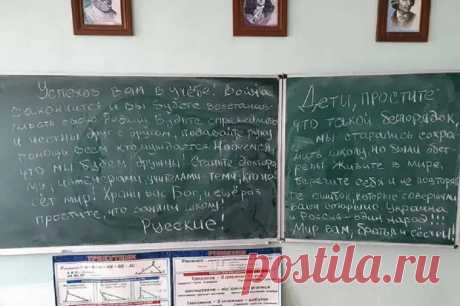 Успехов вам в учёбе! Война
закончится и вы будете восстанав
ливать свою Родину. Будьте справедливы
и честны друг с другом, подавайте руку
помощи всем кто нуждается. Надеемся,
что мы будем дружны! Станьте доктора
ми, инженерами, учителями - теми, кто не
сёт мир! Храни вас Бог, и ещё раз
простите, что заняли школу!
Русские!
Дети, простите
что такой беспорядок,
мы старались сохра
нить школу, но были обст
релы. Живите в мире,
берегите себя и не повторяй
те ошибок, которые совершили
ваши старшие. Украина
и Россия - один народ!!!
Мир вам, братья и сёстры!
postila.ru